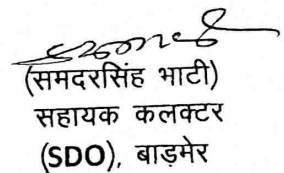 (समदरसिंह भाटी)
सहायक कलक्टर
(SDO), बाड़मेर